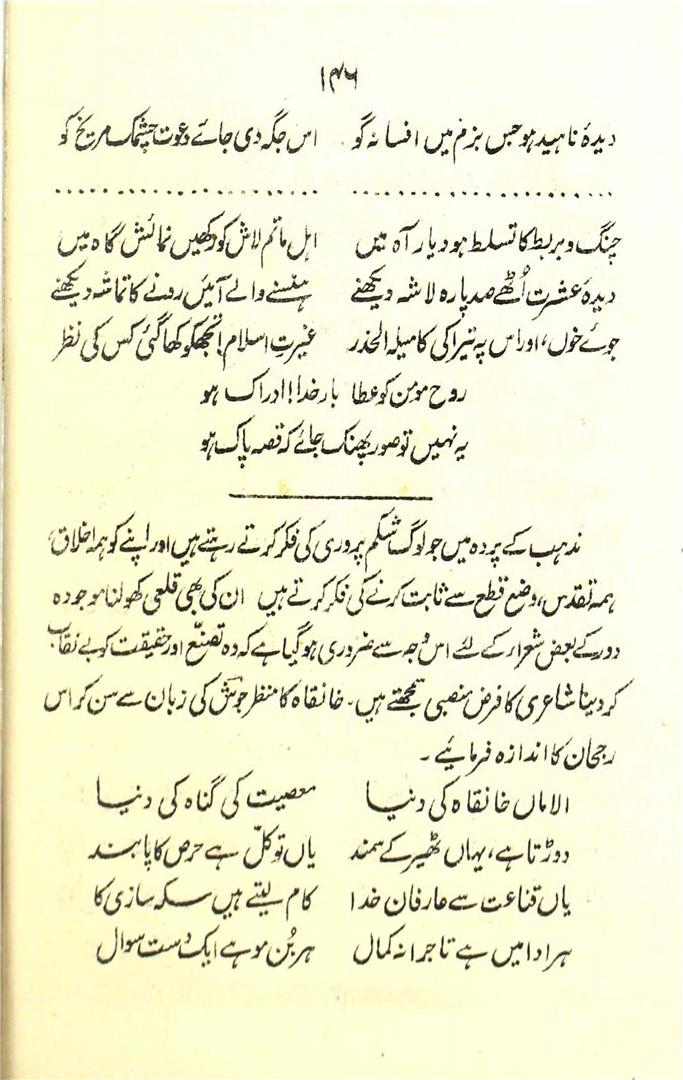 ۱۴۶
دیدۂ ناہید ہو جس بزم میں افسانہ گو اس جگہ دی جائے دعوت چشمکِ مریخ کو
.................... ....................
چنگ و بربط کا تسلط ہو دیار آہ میں اہل ماتم لاش کو رکھیں نمائش گاہ میں
دیدۂ عشرت اُٹھے صد پارہ لاشہ دیکھنے ہنسنے والے آئیں رونے کا تماشہ دیکھنے
جوئے خوں، اور اس پہ تیراکی کا میلہ الحذر غیرتِ اسلام! تجھکو کھا گئی کس کی نظر
روح مومن کو عطا بار خدا! ادراک ہو
یہ نہیں تو صور پھنک جائے کہ قصہ پاک ہو
مذہب کے پردہ میں جو لوگ شکم پروری کی فکر کرتے رہتے ہیں اور اپنے کو ہمہ اخلاق،
ہمہ تقدس، وضع قطع سے ثابت کرنے کی فکر کرتے ہیں ان کی بھی قلعی کھولنا موجودہ
دور کے بعض شعراء کے لئے اس وجہ سے ضروری ہو گیا ہے کہ وہ تصنّع اور حقیقت کو بے نقاب
کر دینا شاعری کا فرض منصبی سمجھتے ہیں۔ خانقاہ کا منظر جوشؔ کی زبان سے سن کر اس
رجحان کا اندازہ فرمائیے۔
الاماں خانقاہ کی دنیا معصیت کی گناہ کی دنیا
دوڑتا ہے، یہاں ٹھیر کے سمند یاں توکلّ ہے حرص کا پابند
یاں قناعت سے عارفان خدا کام لیتے ہیں سکہ سازی کا
ہر ادا میں ہے تاجرانہ کمال ہر بُن مو ہے ایک دست سوال